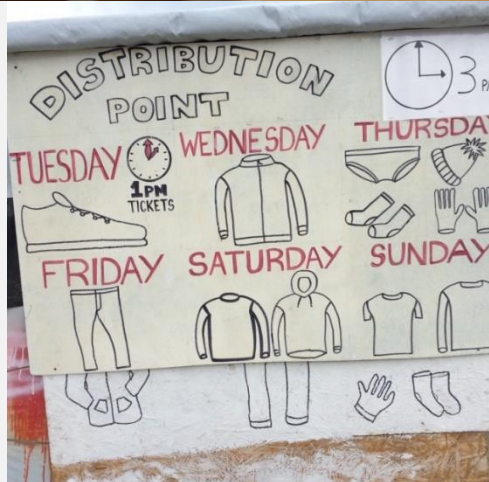 DISTRIBUTION
POINT
3
TUESDAY
1PM
TICKETS
WEDNESDAY
THURSDAY
FRIDAY
SATURDAY
SUNDAY